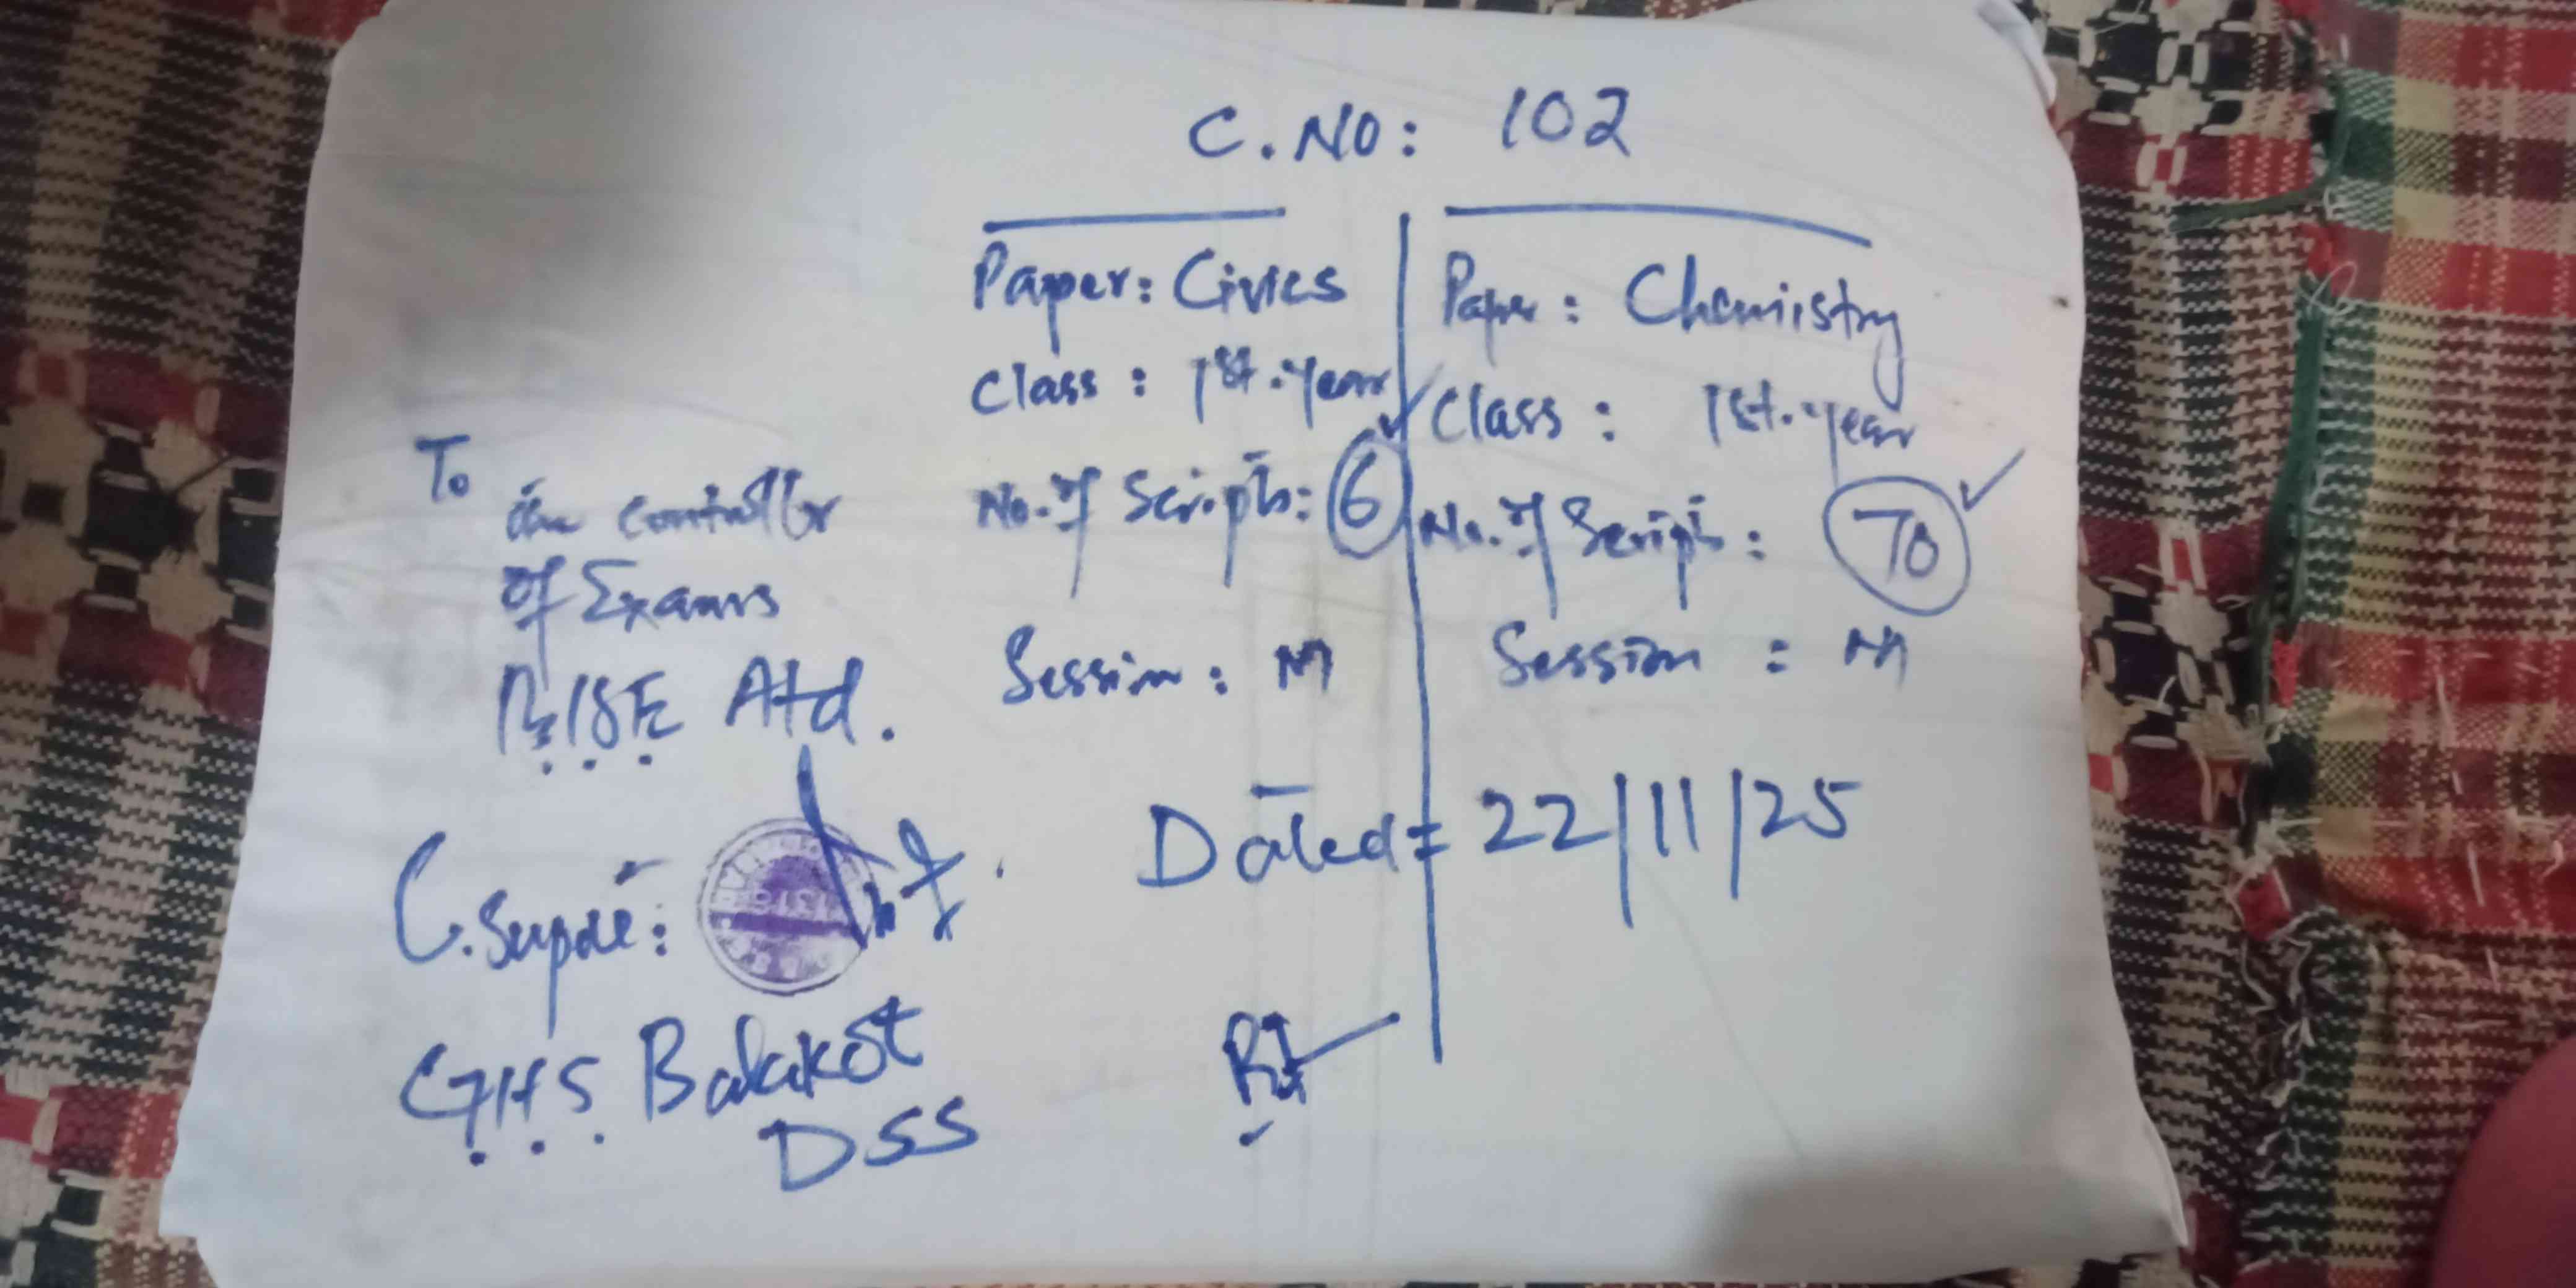 C.NO: 102
Paper: Civics
Class: 1st.year
No. of Scripts: 6
Session: M
Paper: Chemistry
Class: 1st.year
No. of Scripts: 70
Session: M
Dated= 22/11/25
To
the controller
of Exams
B.I.S.E Atd.
C.Supdt:
G.H.S. Balakot
DSS